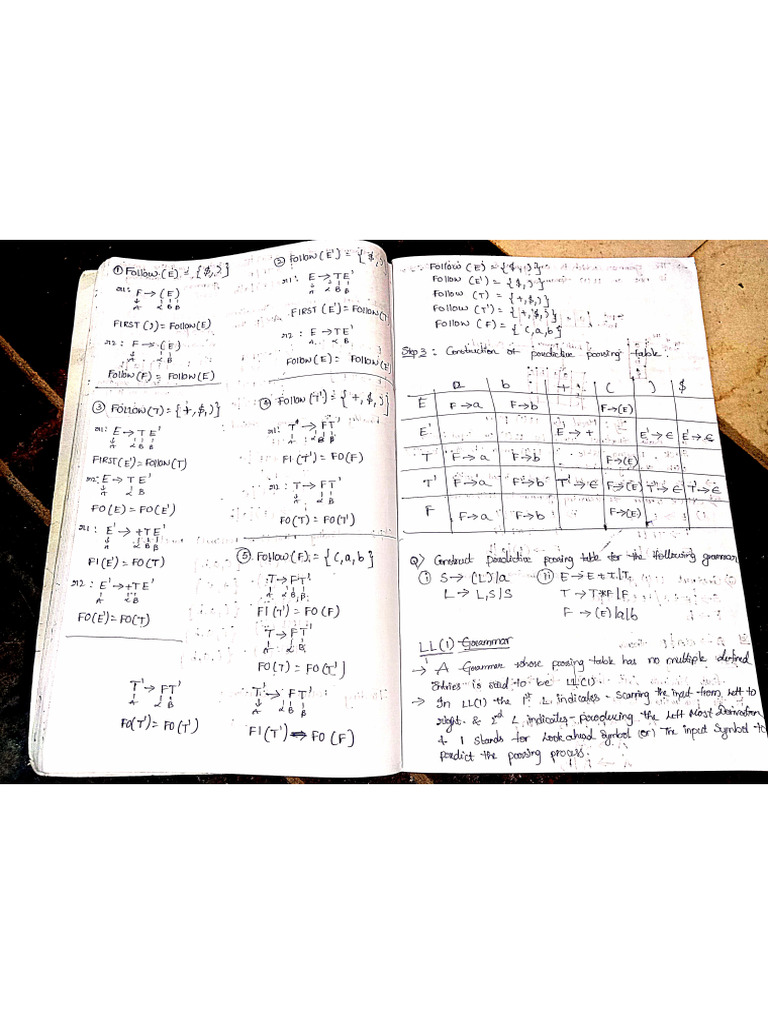 ① Follow(E) = {$, )}
r1: F → (E)
↓ | | |
A α B β
FIRST()) = Follow(E)
r2: F → (E)
↓ | | |
A α B β
Follow(F) = Follow(E)
③ Follow(T) = {+,$,)}
r1: E → T E'
↓ | |
A α B
FIRST(E') = Follow(T)
r2: E → T E'
↓ | |
A α B
FO(E) = FO(E')
r1: E' → +TE'
↓ | | |
A α B β
FI(E') = FO(T)
r2: E' → +TE'
A α B
FO(E') = FO(T)
T' → FT'
A α B β
FO(T') = FO(T')
② Follow(E') = {$, )}
r1: E → TE'
A α B β
FIRST(E') = Follow(T
r2: E → TE'
A α B β
Follow(E) = Follow(E')
④ Follow(T') = {+,$,)}
r1: T' → FT'
A α B β
FI(T') = FO(F)
r2: T → FT'
A α B
FO(T) = FO(T')
⑤ Follow(F) = {(,a,b}
T → FT'
A α B β
FI(T') = FO(F)
T → FT'
A α B
FO(T) = FO(T')
T' → FT'
A α B β
FI(T') ⇒ FO(F)
Follow (E) = {$, )}
Follow (E') = {$, )}
Follow (T) = {+,$,)}
Follow (T') = {+,$,)}
Follow (F) = {(,a,b}
Step 3: Construction of predictive parsing table.
a b + ( ) $
E F→a F→b F→(E)
E' E'→+ E'→ϵ E'→ϵ
T F→a F→b F→(E)
T' F→a F→b T'→ϵ F→(E) T'→ϵ T'→ϵ
F F→a F→b F→(E)
Q) Construct predictive parsing table for the following grammar
① S → (L)|a ② E → E+T|T
L → L,S|S T → T*F|F
F → (E)|a|b
LL(1) Grammar
→ A Grammar whose parsing table has no multiple defined
Entries is said to be LL(1).
→ In LL(1) the 1st L indicates - Scanning the input from left to
right. & 2nd L indicates - Producing the Left Most Derivation
& 1 stands for Look ahead symbol (or) The input Symbol to
predict the parsing process.